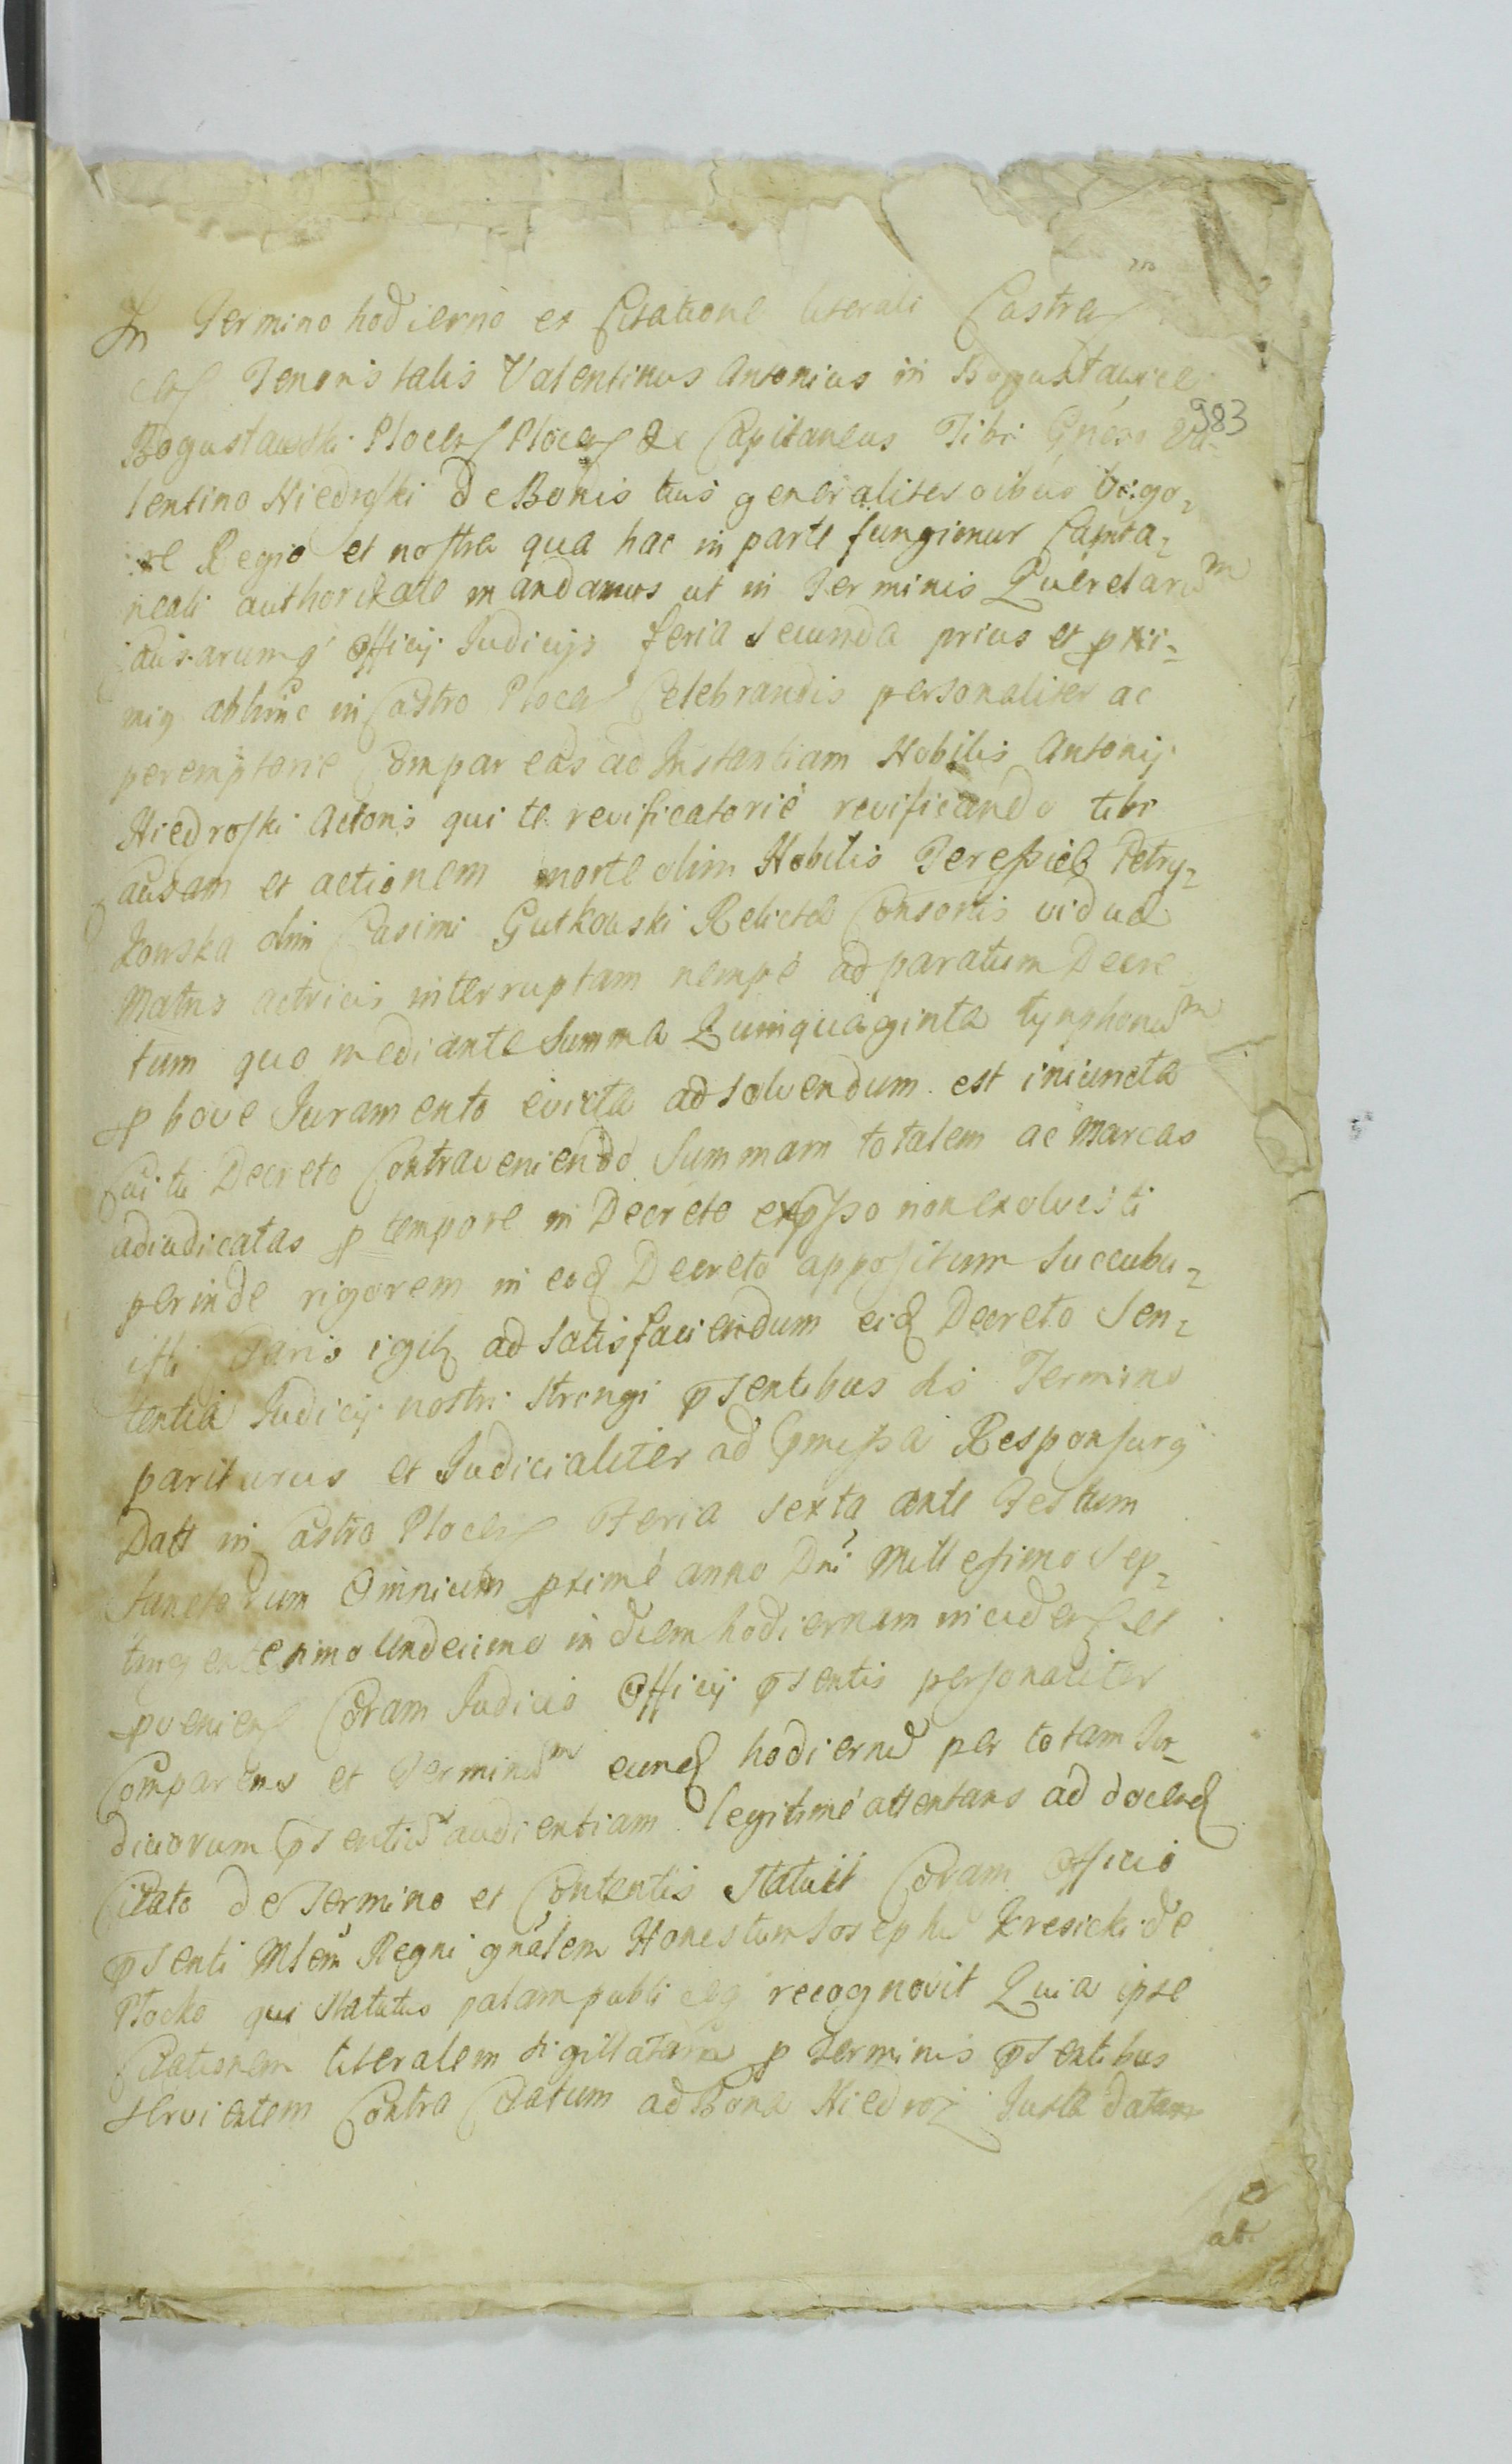 In Termino hodierno ex Citatione literali Castren
Tenoris talis Valentinus Antonius in Bogusławice
983
Bogusławski Plocen Plocen &c Capitaneus Tibi Gnéroso Va-
lentino Niedroski de Bonis tuis generaliter oibus
Regio et nostra qua hac in parte fungimur Capita-
neali authoritate mandamus ut in Terminis Querelarum
causarumq Officij Judicijs feria secunda prius et proxi-
mis abhinc in Castro Plocen Celebrandis personaliter ac
peremptorie Compareas ad Instantiam Nobilis Antonij
Niedroski Actoris qui te revificatorié revificando tibi
causam et actionem morte olim Nobilis Teressiae Petry-
kowska olim Casimi Gutkowski Relictae Consortis viduae
Matris actricis interruptam nempé ad paratum Decre
tum quo mediante summa Quinquaginta tynphonum
p bove Juramento evicta ad solvendum est iniuncta
Cui tu Decreto Contraveniendo Summam totalem ac Marcas
adiudicatas p tempore in Decreto expsso non exolvisti
perinde rigorem in eod Decreto appositum succubu-
isti igitr ad satisfaciendum eid Decreto Sen-
tentia Judicij nostri stringi psentibus his Termino
pariturus et Judicialiter ad pmissa Responsurq
Datt in Castro Plocen Feria sexta ante Festum
Sanctorum Omnium proximé anno Dni Millesimo Sep-
tingentesimo Undecimo in diem hodiernam inciden et
pvenien Coram Judicio Officij psentis personaliter
Comparens et Terminum eund hodiernu per totam Ju-
diciorum psentiu audientiam legitimé attentans ad docend
Citato de Termino et Contentis Statuit Coram Officio
psenti Mlem Regni gnálem Honestum Josephu Kresicki de
Płocko qui Statutus palam publiceq recognovit Quia ipse
Citationem literalem sigillatam p Terminis psentibus
servientem Contra Citatum ad Bona Niedroz Juxta datam